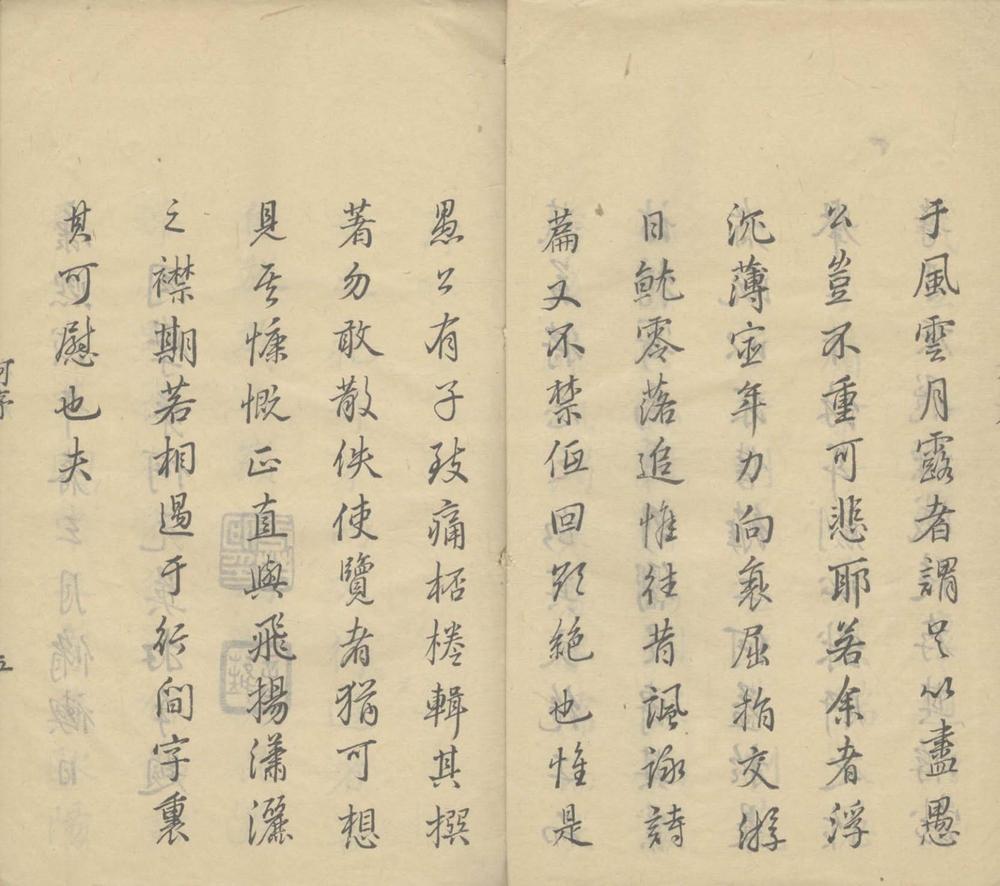 于風雲月露者謂足以盡愚
公豈不重可悲耶若余者浮
沉薄宦年力向衰屈指交游
日就零落追惟往昔諷詠詩
篇又不禁低回欲絶也惟是
愚公有子致痛桮棬輯其撰
著勿敢散佚使覽者猶可想
見其慷慨正直與飛揚瀟灑
之襟期若相遇于行間字裏
其可慰也夫